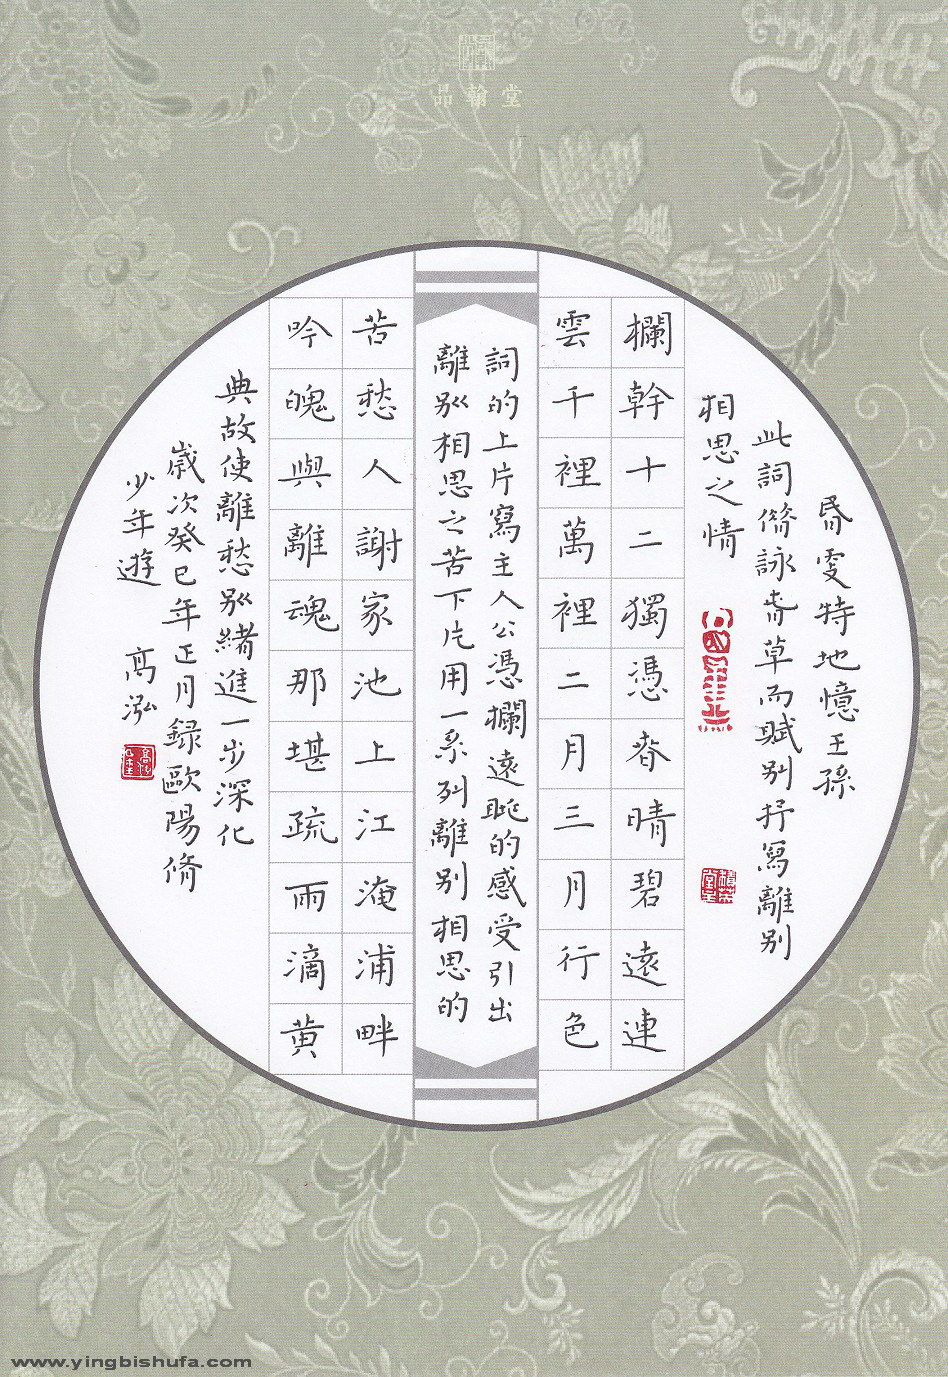 品翰堂
昏更特地憶王孫
此詞借詠春草而賦别抒寫離别
相思之情
欄幹十二獨憑春晴碧遠連
雲千裡萬裡二月三月行色
詞的上片寫主人公憑欄遠眺的感受引出
離别相思之苦下片用一系列離别相思的
苦愁人謝家池上江淹浦畔
吟魄與離魂那堪疏雨滴黄
典故使離愁别緒進一步深化
歲次癸巳年正月録歐陽脩
少年遊 高泓
www.yingbishufa.com